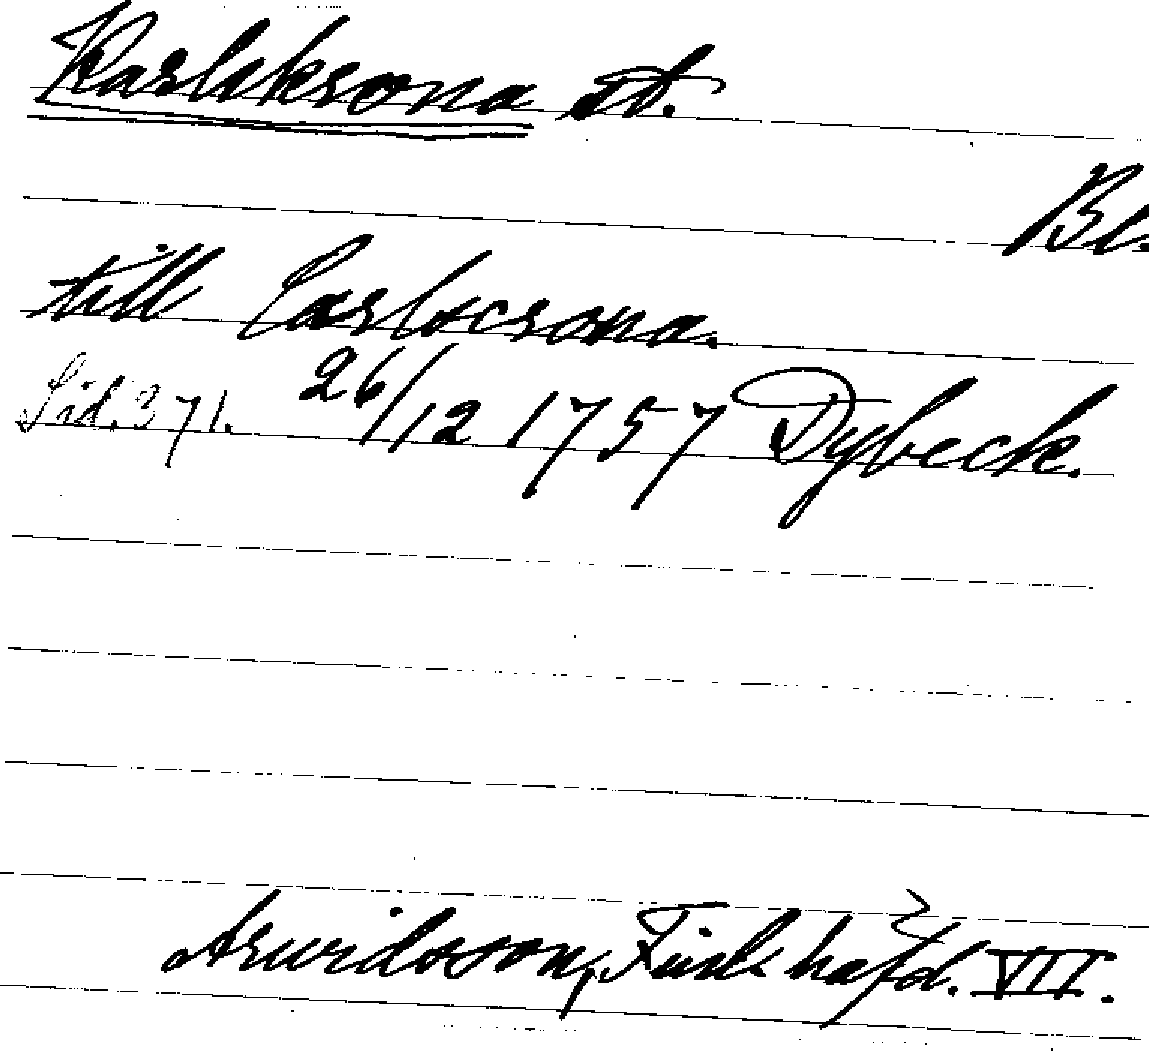 Karlskrona st.
Bl.
till Carlscrona.
Sid. 371. 26/12 1757 Dybeck.
Arwidsson, Förb. häfd. VII.